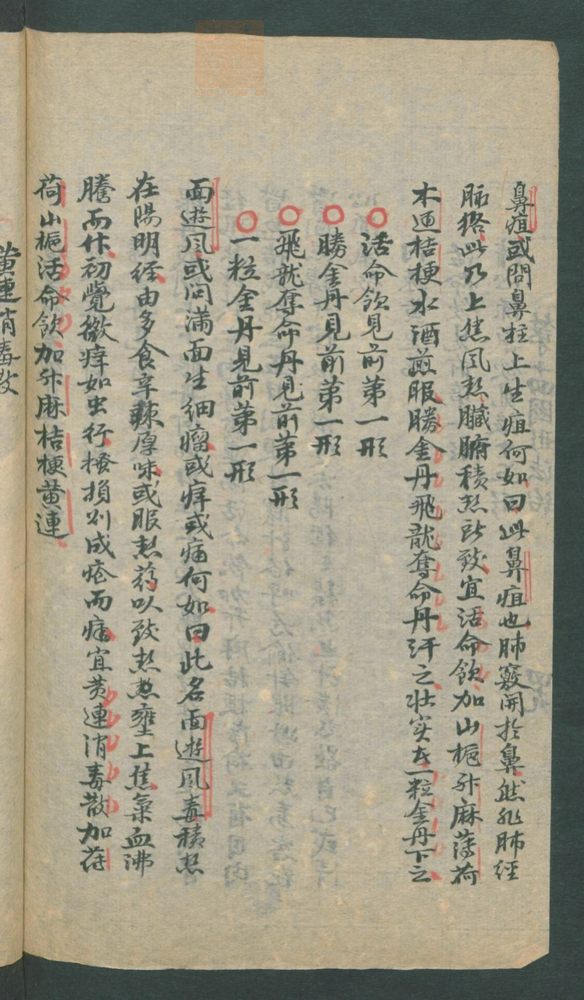 鼻疽或問鼻拄上生疽何如曰此鼻疽也肺竅開扵鼻然非肺經
脈絡此乃上焦風热臟腑積热所致宜活命飲加山梔升麻薄荷
木通桔梗水酒煎服勝金丹飛龍奪命丹汗之壮实者一粒金丹下之
活命飲見前第一形
勝金丹見前第一形
飛龍奪命丹見前第一形
一粒金丹見前第一形
面遊风或问满面生細瘤或痒或痛何如曰此名面遊风毒積热
在陽明经由多食辛辣厚味或服热药以致热熬壅上焦氣血沸
騰而作初覺微痒如虫行搔損則成疮而痛宜黄連消毒散加荷
荷山梔活命飲加升麻桔梗黄連
黄連消毒散